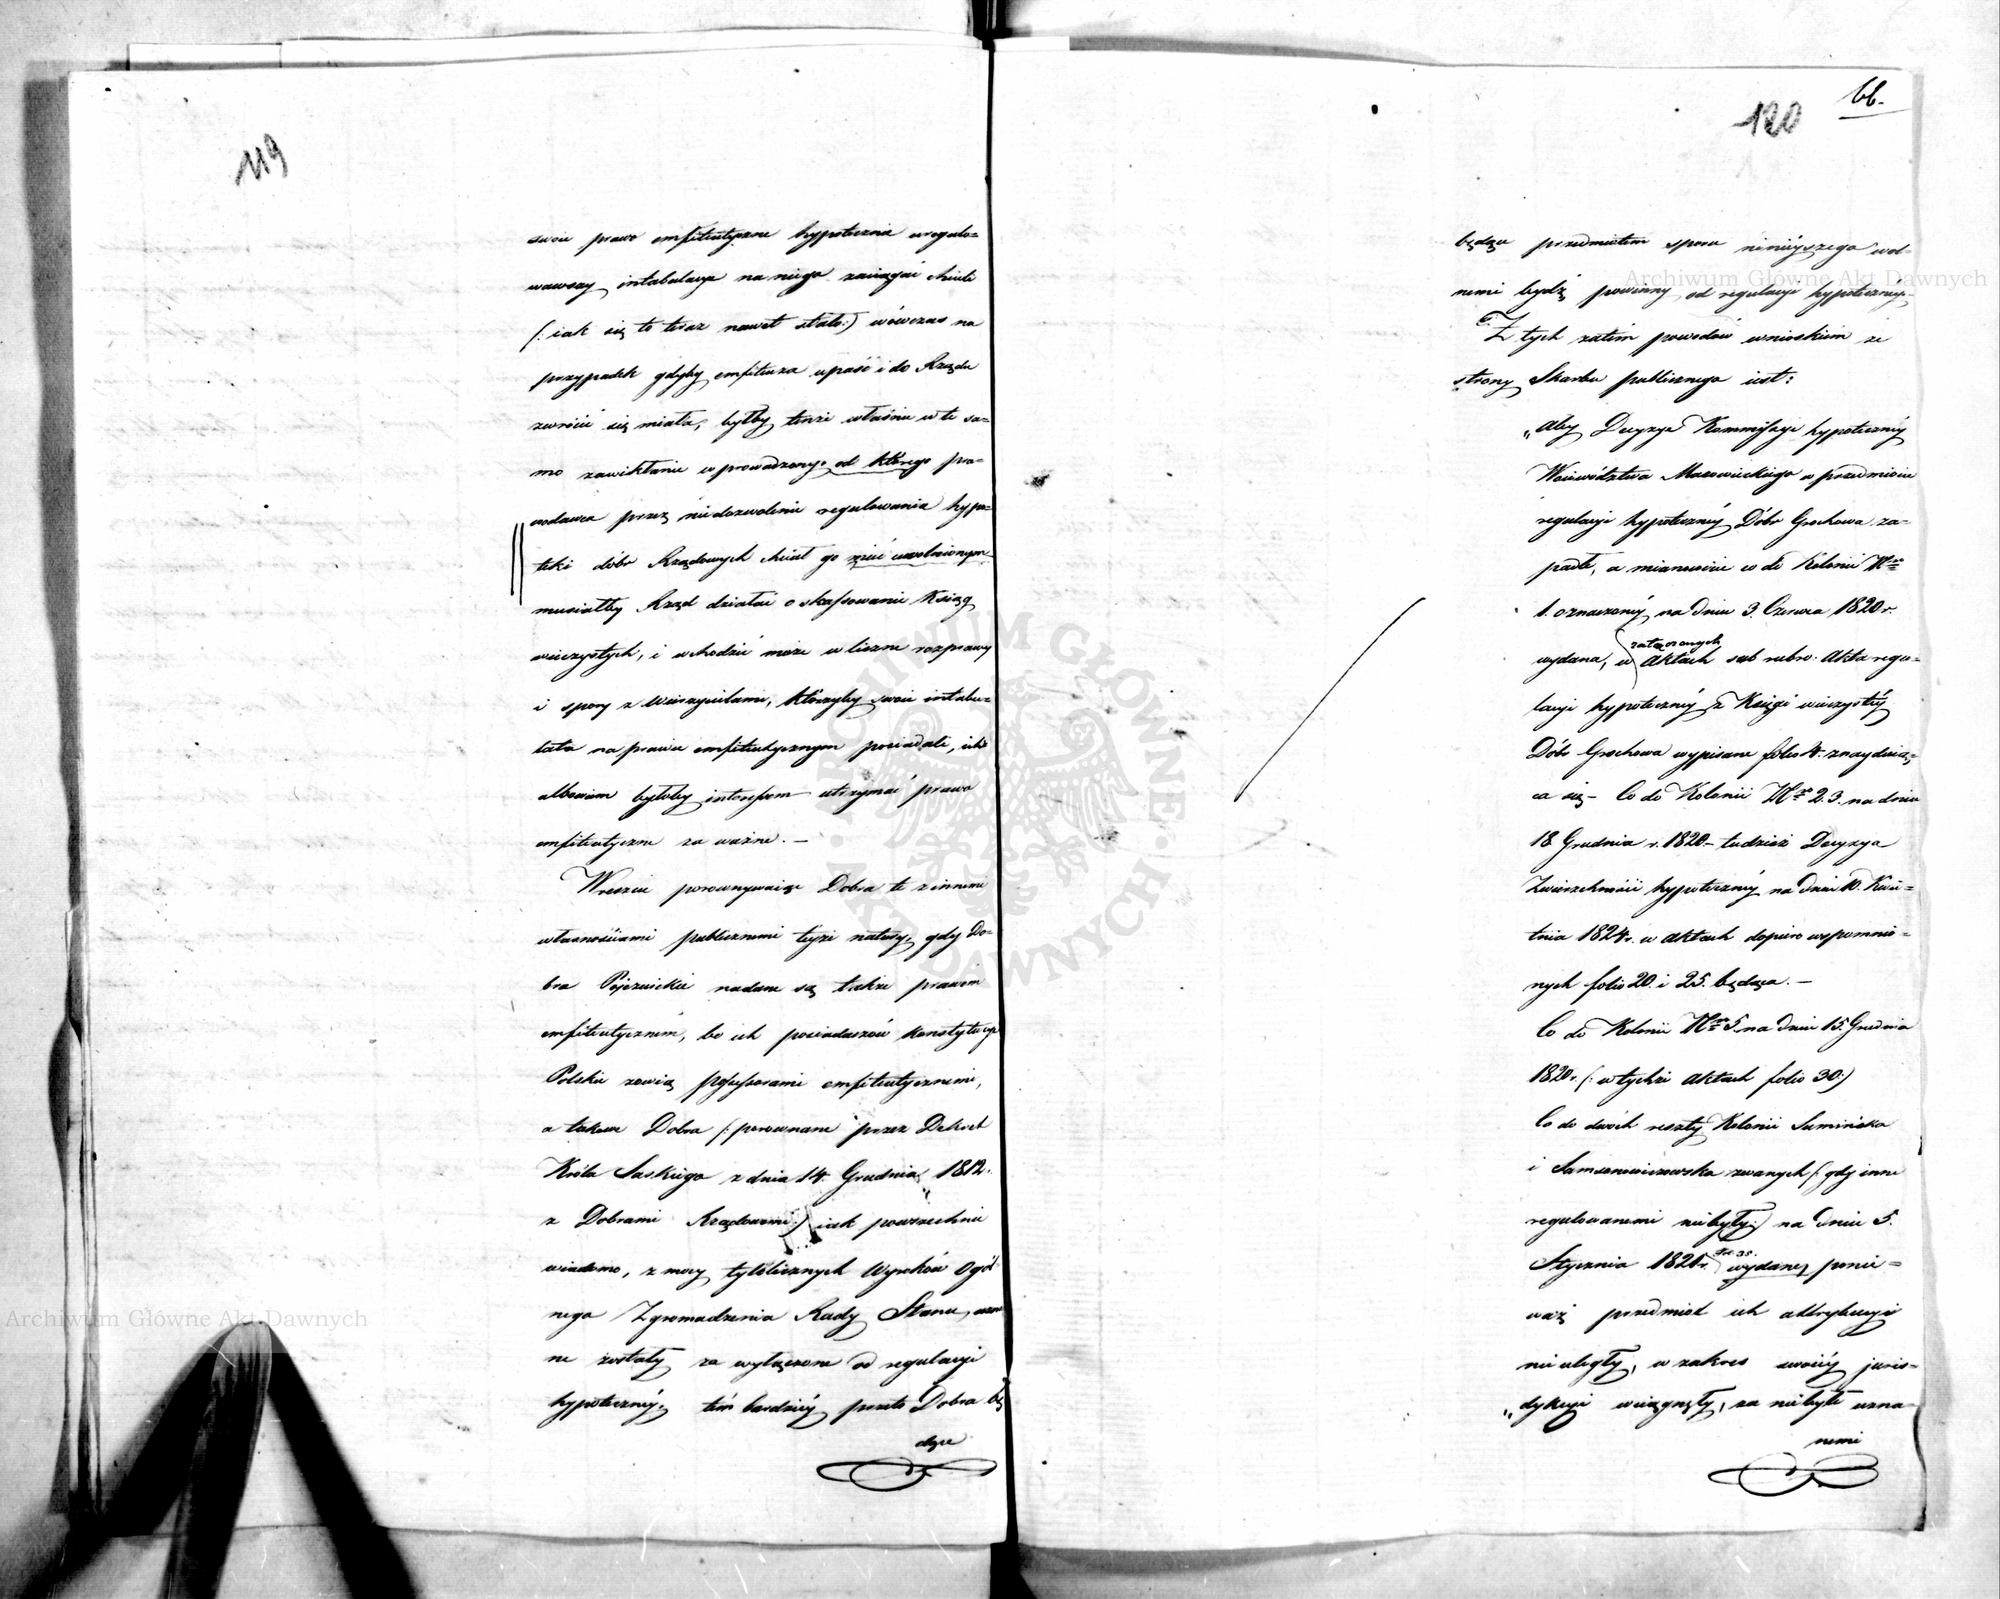 119
swoie prawo emfiteutyczne hypotecznie uregulo=
wawszy intabulacye na niego zaciągać chcieli
(: iak się to teraz nawet stało :) wówczas na
przypadek gdyby emfiteuza upaść i do Rządu
zwrócić się miała, byłby tenże właśnie w te sa=
mo zawikłanie wprowadzony, od którego pra=
wodawca przez niedozwolenie regulowania hypo=
teki dóbr Rządowych chciał go mieć uwolnionym
musiałby Rząd działać o skassowanie Ksiąg
wieczystych, i wchodzić może w liczne rozprawy
i spory z wierzycielami, którzyby swoie intabu=
lata na prawie emfiteutycznym posiadali, ich
albowiem byłoby interessem utrzymać prawo
emfiteutyczne za ważne. —
Wreszcie porównywaiąc Dobra te z innemi
własnościami publicznemi teyże natury, gdy Do=
bra Pojezuickie nadane są także prawem
emfiteutyczném, bo ich posiadaczów konstytucye
Polskie zowią possessorami emfiteutycznemi,
a takowe Dobra (: porównane przez Dekret
Króla Saskiego z dnia 14. Grudnia 1812.
z Dobrami Rządowemi :) iak powszechnie
wiadomo, z mocy tylolicznych Wyroków Ogól=
nego Zgromadzenia Rady Stanu, uzna
ne zostały za wyłączone od regulacyi
hypoteczney, tém bardziéy przeto Dobra bę
dące
120
66.
będące przedmiotem sporu ninieyszego wol=
nemi bydź powinny od regulacyi hypoteczney.
Z tych zatém powodów wnioskiem ze
strony Skarbu publicznego iest:
„Aby Decyzye Kommissyi hypotecznéy
Woiewództwa Mazowieckiego w przedmiocie
regulacyi hypotecznéy Dóbr Grochowa za=
padłe, a mianowicie co do Kolonii Nro
1. oznaczonéy na dniu 3. Czerwca 1820 r.
załączonych
wydana, w aktach sub rubro: Akta regu=
lacyi hypotecznéy z Księgi wieczystéy
Dóbr Grochowa wypisane folio 4. znayduią=
ca się — Co do Kolonii Nro 2. 3. na dniu
18 Grudnia r. 1820. — tudzież Decyzya
Zwierzchności hypotecznéy na dniu 10. Kwie=
tnia 1824 r. w aktach dopiero wspomnio=
nych folio 20. i 25. będąca. —
Co do Kolonii Nro 5. na dniu 15. Grudnia
1820 r. (: w tychże aktach folio 30 :)
Co do dwóch reszty Kolonii Sumińska
i Samsonowiczowska zwanych (: gdy inne
regulowanemi niebyły :) na dniu 5.
Fol. 35.
Stycznia 1821 r. wydane, ponie=
waż przedmiot ich attrybucyi
nie uległy, w zakres swoiéy juris=
„dykcyi wciągnęły, za niebyłe uzna=
nemi